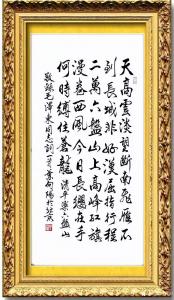 天高雲淡望斷南飛雁不
到長城非好漢屈指行程
二萬六盤山上高峰紅旗
漫卷西風今日長纓在手
何時縛住蒼龍 清平樂六盤山
敬錄毛澤東同志詞一首葉向陽於北京